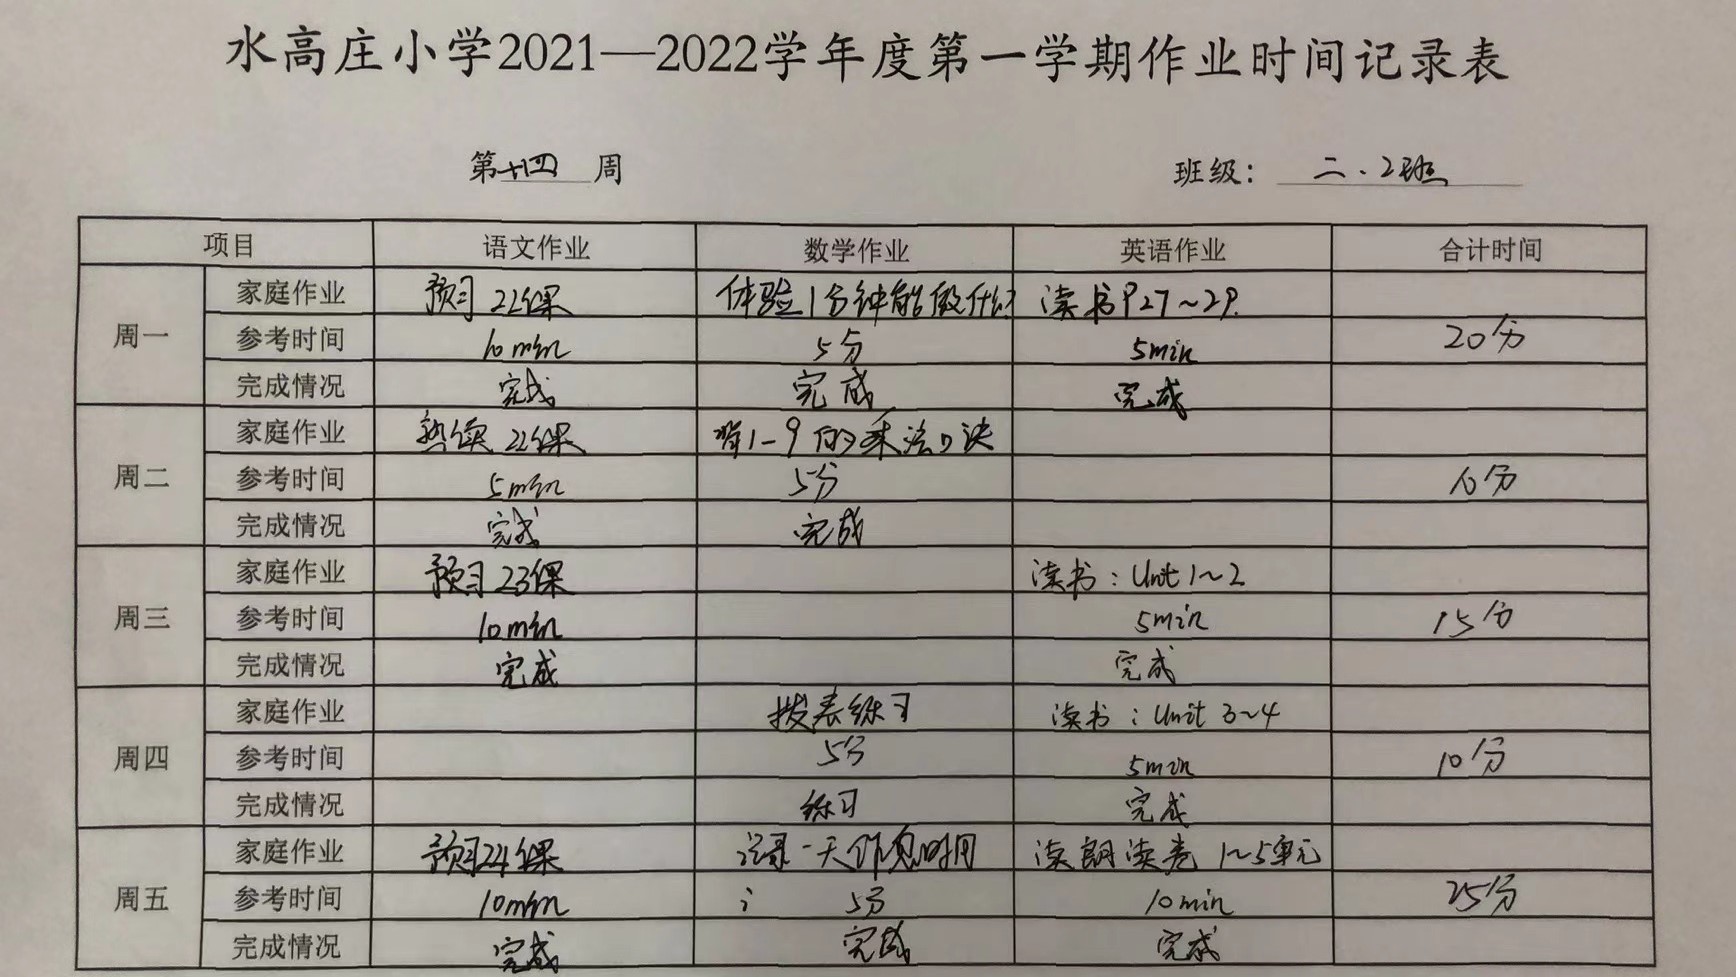 水高庄小学2021—2022学年度第一学期作业时间记录表
第十四周 班级：二.2班
项目 语文作业 数学作业 英语作业 合计时间
周一
家庭作业 预习22课 体验1分钟能做什么? 读书P27~29.
参考时间 10min 5分 5min 20分
完成情况 完成 完成 完成
周二
家庭作业 熟读22课 背1-9的乘法口诀
参考时间 5min 5分 10分
完成情况 完成 完成
周三
家庭作业 预习23课 读书：Unit 1~2
参考时间 10min 5min 15分
完成情况 完成 完成
周四
家庭作业 拨表练习 读书：Unit 3~4
参考时间 5分 5min 10分
完成情况 练习 完成
周五
家庭作业 预习24课 记录一天作息时间 读朗读卷 1~5单元
参考时间 10min 5分 10min 25分
完成情况 完成 完成 完成